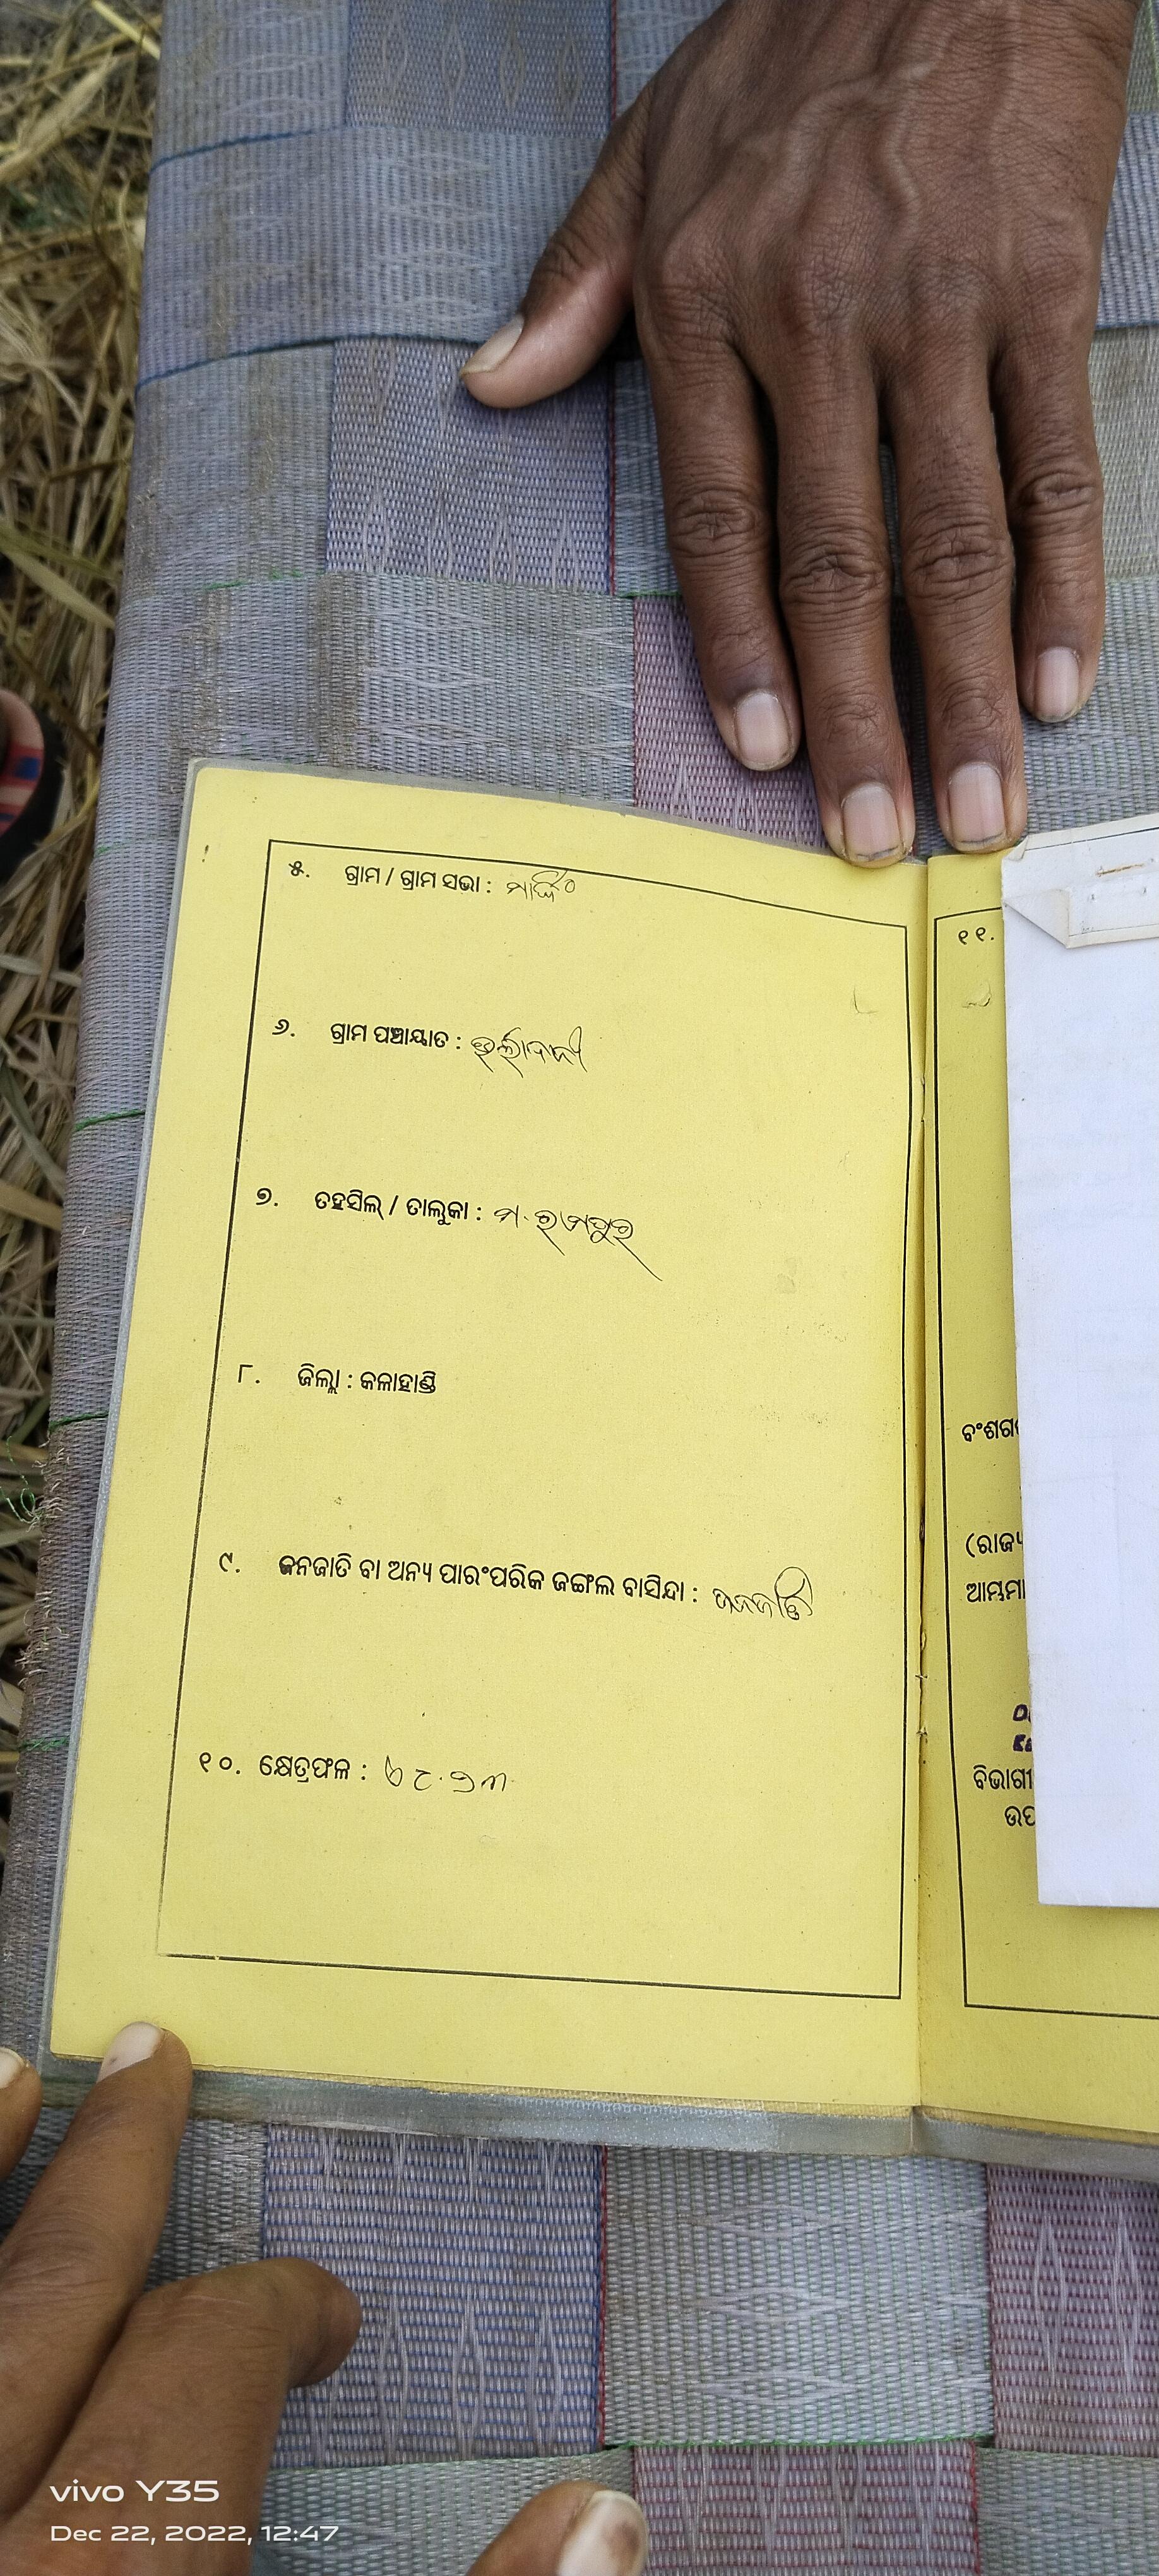 ୫. ଗ୍ରାମ / ଗ୍ରାମ ସଭା :
୬. ଗ୍ରାମ ପଞ୍ଚାୟାତ :
୭. ତହସିଲ୍ / ତାଲୁକା : ମ. ରାମପୁର
୮. ଜିଲ୍ଲା : କଳାହାଣ୍ଡି
୯. ଜନଜାତି ବା ଅନ୍ୟ ପାରଂପରିକ ଜଙ୍ଗଲ ବାସିନ୍ଦା : ଜନଜାତି
୧୦. କ୍ଷେତ୍ରଫଳ :
୧୧.
ବଂଶଗ
(ରାଜ୍ୟ
ଆମ୍ଭମା
ବିଭାଗୀ
ଉପ
vivo Y35
Dec 22, 2022, 12:47